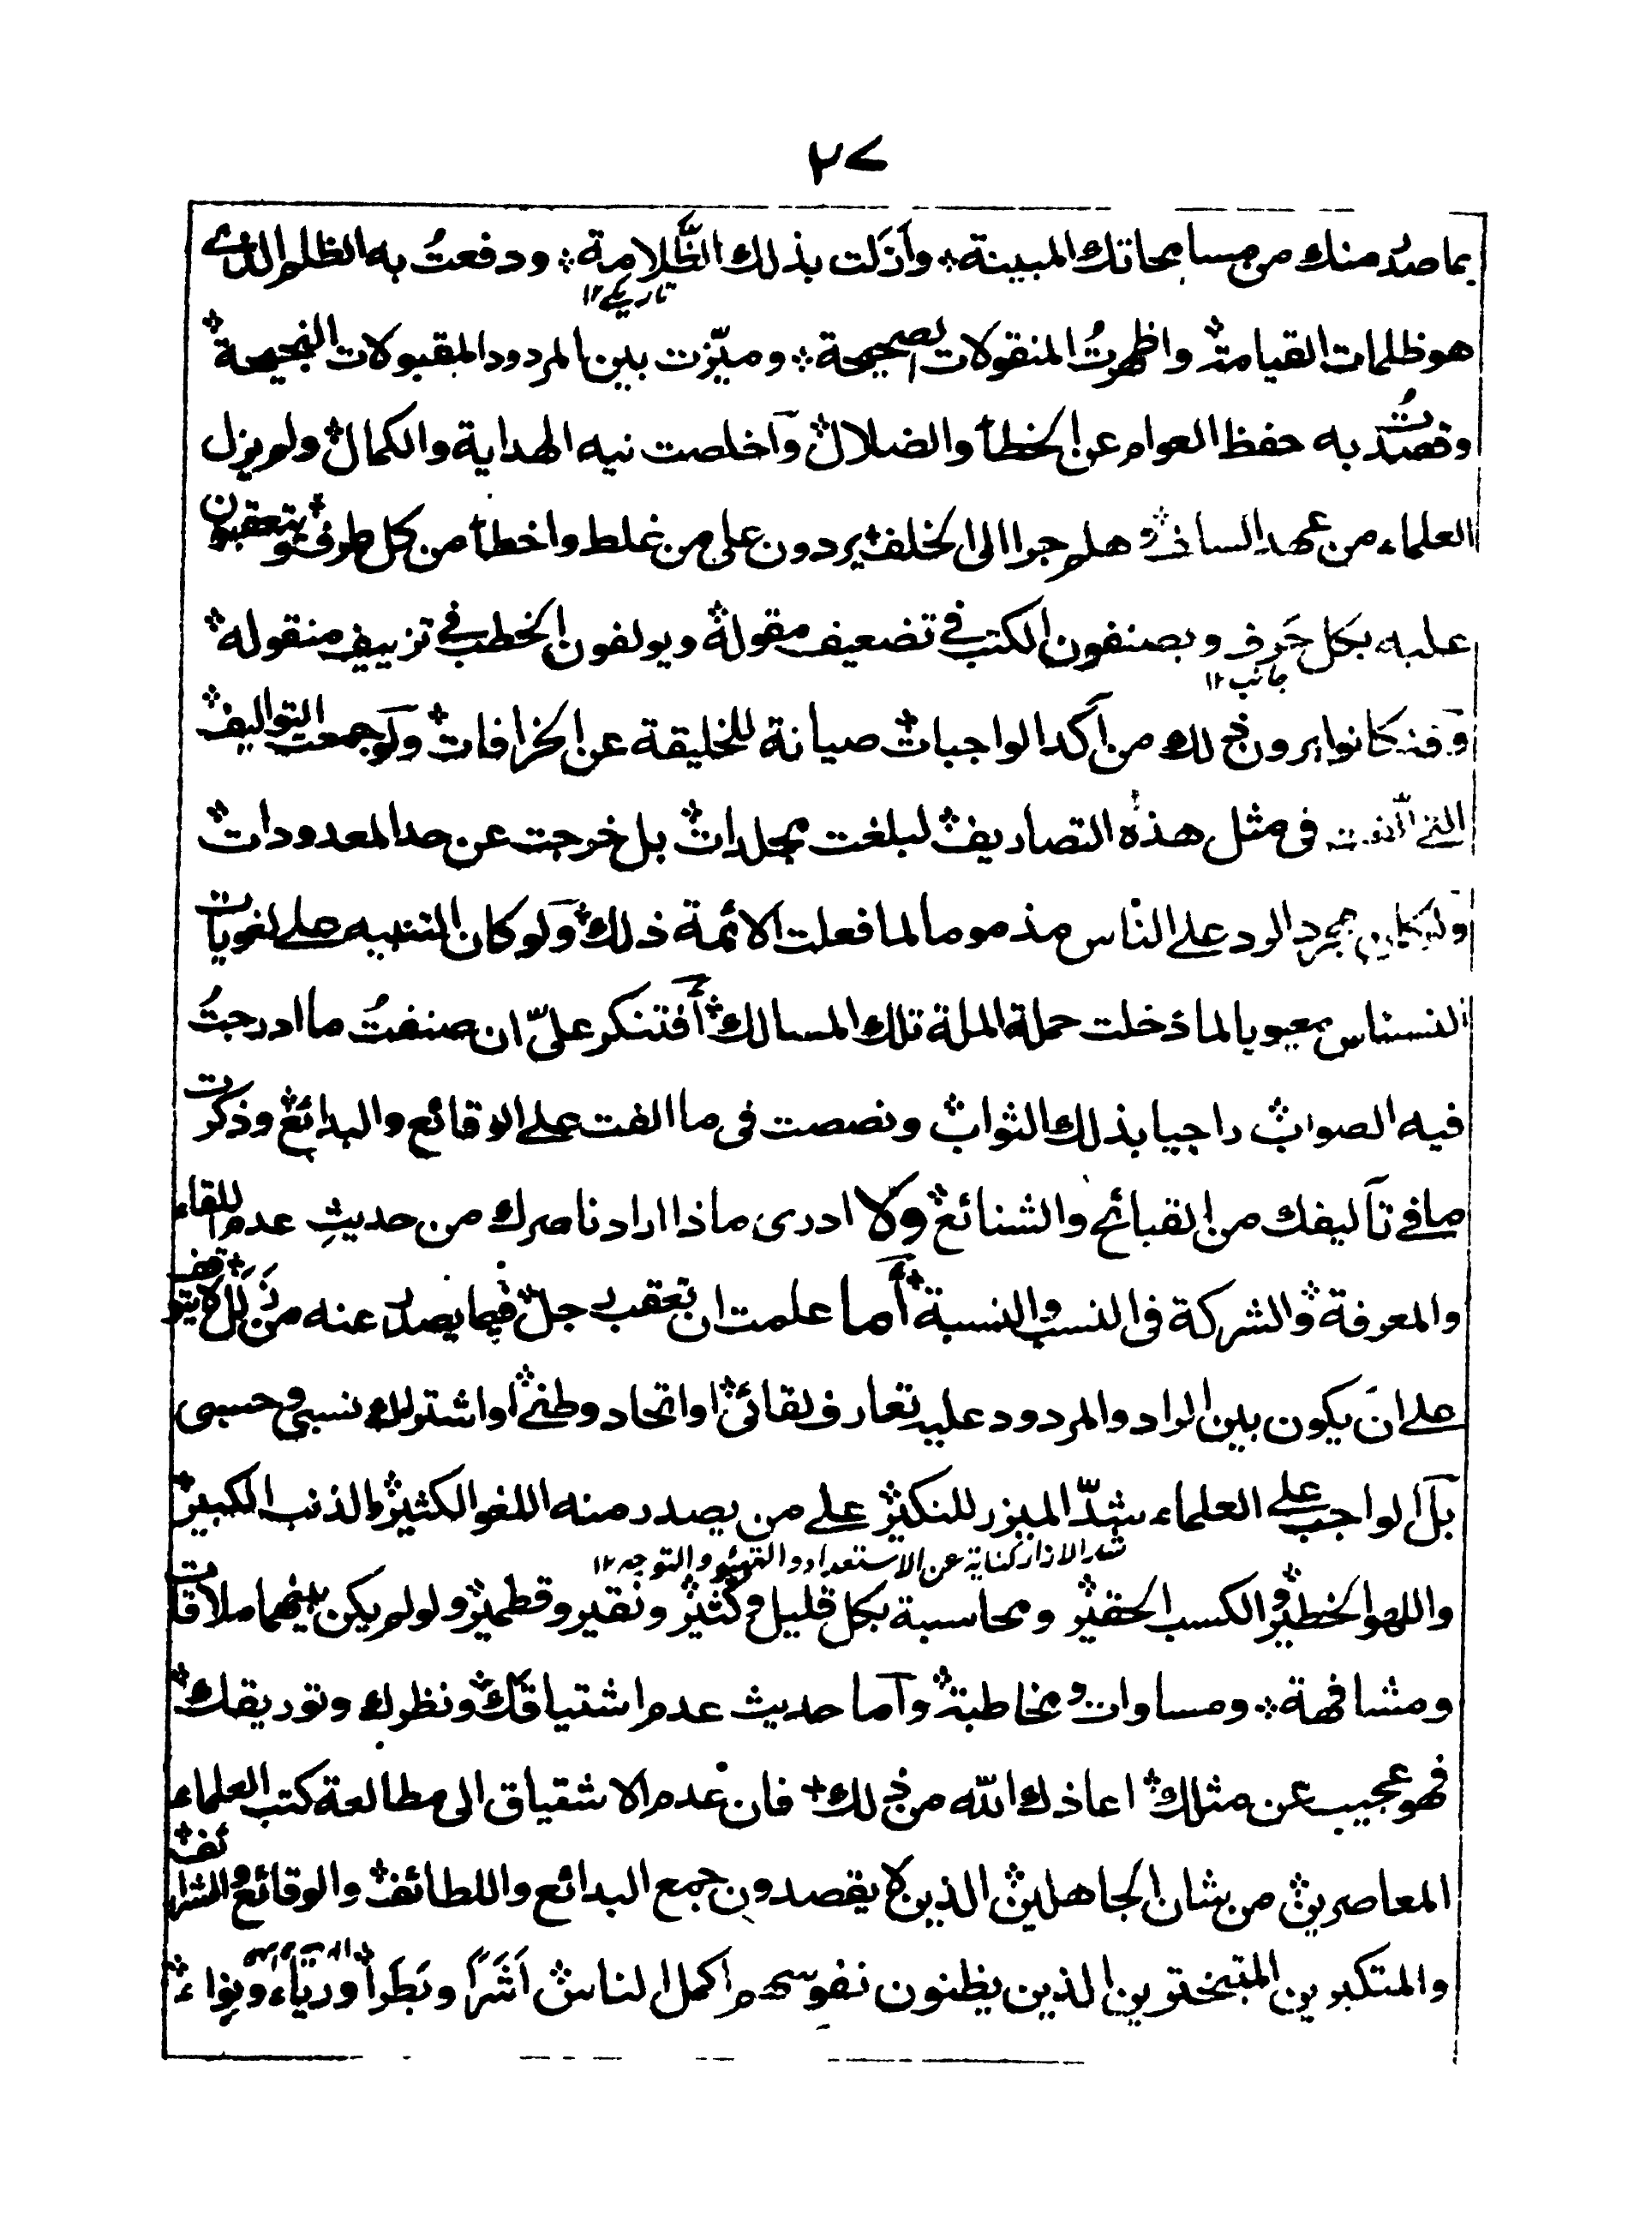 ٢٧
بما صدر منك من مسامحاتك المبينة؞ وأزَلت بذلك الظَّلامة؞ ودفعتُ به الظلم الذے
تاریکی ١٢
هو ظلمات القيامة؞ واظهرتُ المنقولات الصحيحة؞ وميّزت بين المردود المقبولات النجيحة؞
وقصدتُ به حفظ العوام عن الخطأ والضلال؞ وآخلصت نيه الهداية والكمال؞ ولم يزل
العلماء من عهد السلف؞ وهلم جرا الى الخلف؞ يردون على من غلط واخطأ من كل طرف؞ ويتعقبون
عليه بكل حَرف ويصنفون الكتب في تضعيف مقولة؞ ويولفون الخطب في تزييف منقوله؞
جانب ١٢
وقد كانوا يرون ذلك من آكد الواجبات؞ صيانة للخليقة عن الخرافات؞ ولو جمعت التواليف؞
التي الّفت في مثل هذه التصاريف؞ لبلغت مجلدات؞ بل خرجت عن حد المعدودات؞
ولو كان مجرد الرد على الناس مذموما لما فعلت الائمة ذلك؞ ولو كان التنبيه على لغويات
النسناس معيوبا لما دخلت حملة الملة تلك المسالك؞ أفتنكر علىّ ان صنفتُ ما ادرجتُ
فيه الصواب؞ راجيا بذلك الثواب؞ ونصصت فى ما الفت على الوقائع والبدائع؞ وذكرت
ما في تآليفك من القبائح والشنائع؞ ولا ادرى ماذا اراد ناصرك من حديثِ عدم اللقاء
والمعرفة؞ والشركة فى النسب والنسبة؞ أما علمت ان تعقب رجل؞ فيما يصدر عنه من زَلَل؞ لا يتوقف؞
على انَ يكون بين الراد والمردود عليه تعارف لقائى؞ او اتحاد وطنى؞ او اشتراك نسبى وحسبى
بل الواجب على العلماء شدّ الميزر للنكير؞ على من يصدر منه اللغو الكثير؞ والذنب الكبير؞
شد الازار كناية عن الاستعداد والتهيئو والتوجه ١٢
واللهو الخطير؞ والكسب الحقير؞ ومحاسبة بكل قليل وكثير؞ ونقير وقطمير؞ ولو لم يكن بينهما ملاقات
ومشافهة؞ ومساوات ومخاطبة؞ وآما حديث عدم اشتياقك؞ ونظرك وتوريقك؞
فهو عجيب عن مثلك؞ اعاذك الله من ذلك؞ فان عدم الاشتياق الى مطالعة كتب العلماء
المعاصرين؞ من شان الجاهلين؞ الذين لا يقصدون جمع البدائع واللطائف؞ والوقائع والشرائف؞
والمتكبرين المتبخترين الذين يظنون نفوسهم اكمل الناس؞ اَشَراً وبَطَراً ورياء ونِواء؞